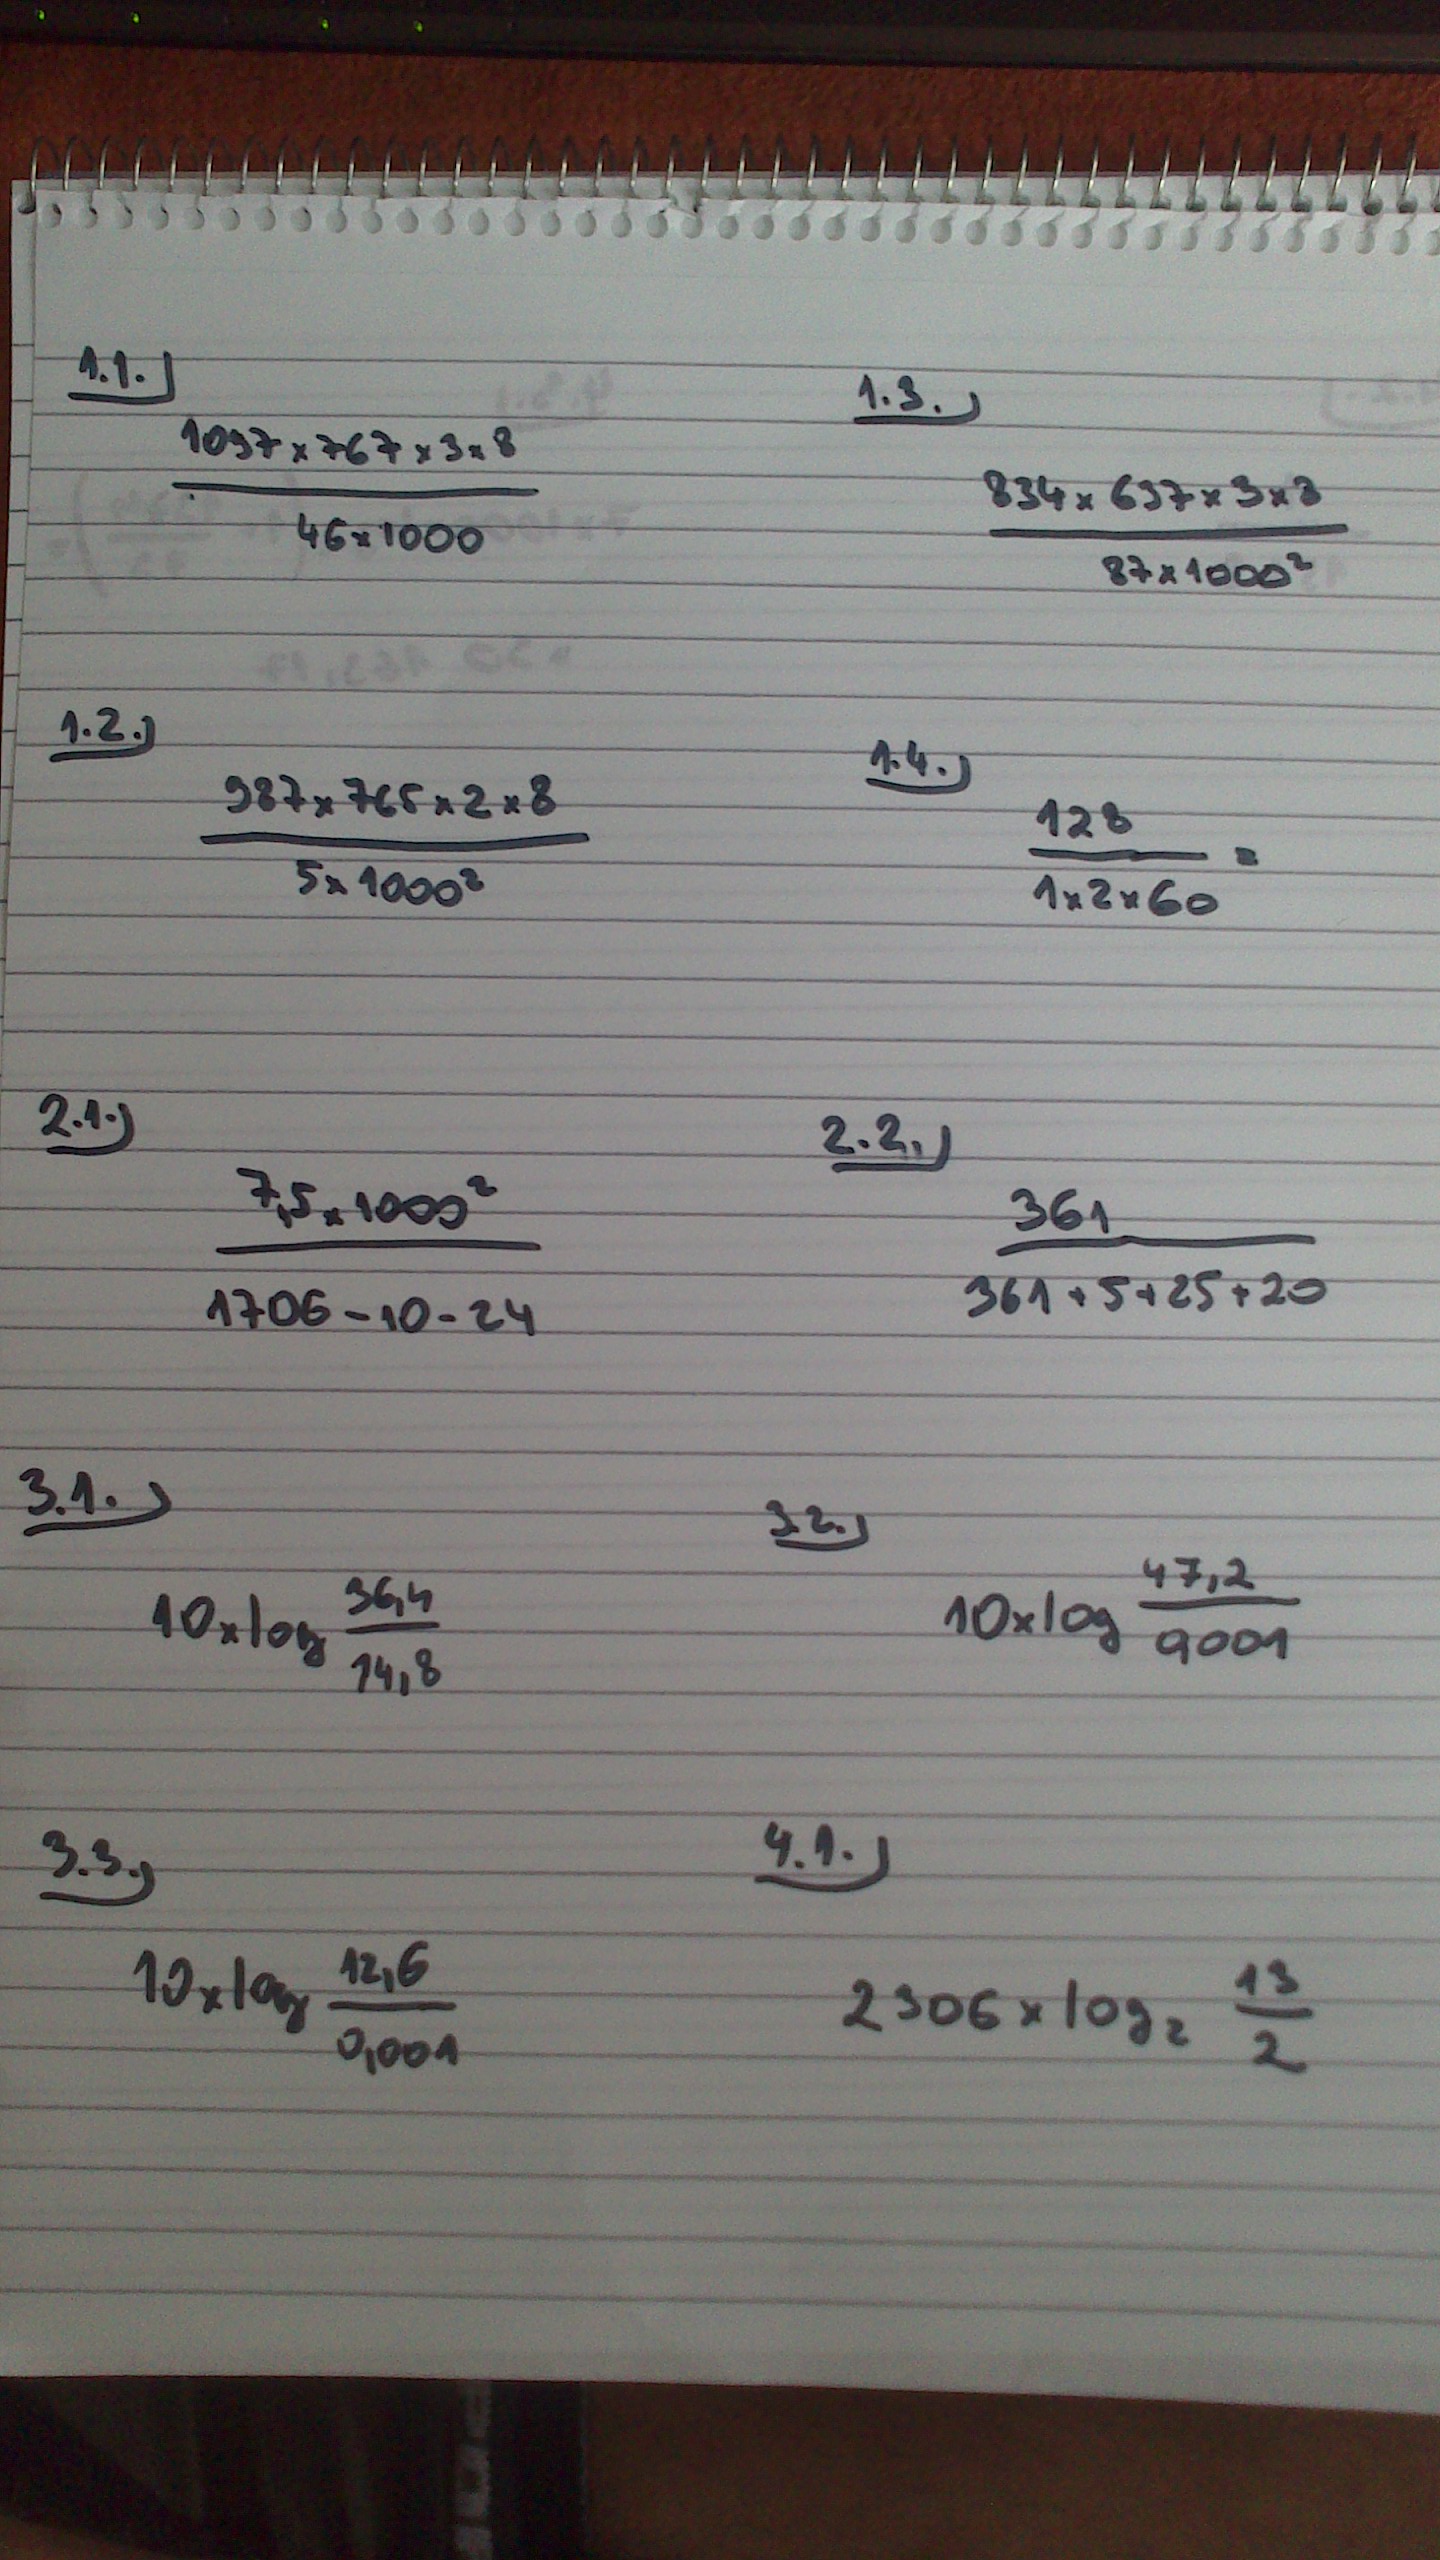 1.1.)
1097 x 767 x 3 x 8
46 x 1000
1.3.)
834 x 697 x 3 x 8
87 x 1000²
1.2.)
987 x 765 x 2 x 8
5 x 1000²
1.4.)
128
1 x 2 x 60 =
2.1.)
7,5 x 1000²
1706 - 10 - 24
2.2.)
361
361 + 5 + 25 + 20
3.1.)
10 x log 36,4
14,8
3.2.)
10 x log 47,2
0,001
3.3.)
10 x log 12,6
0,001
4.1.)
2306 x log₂ 13
2